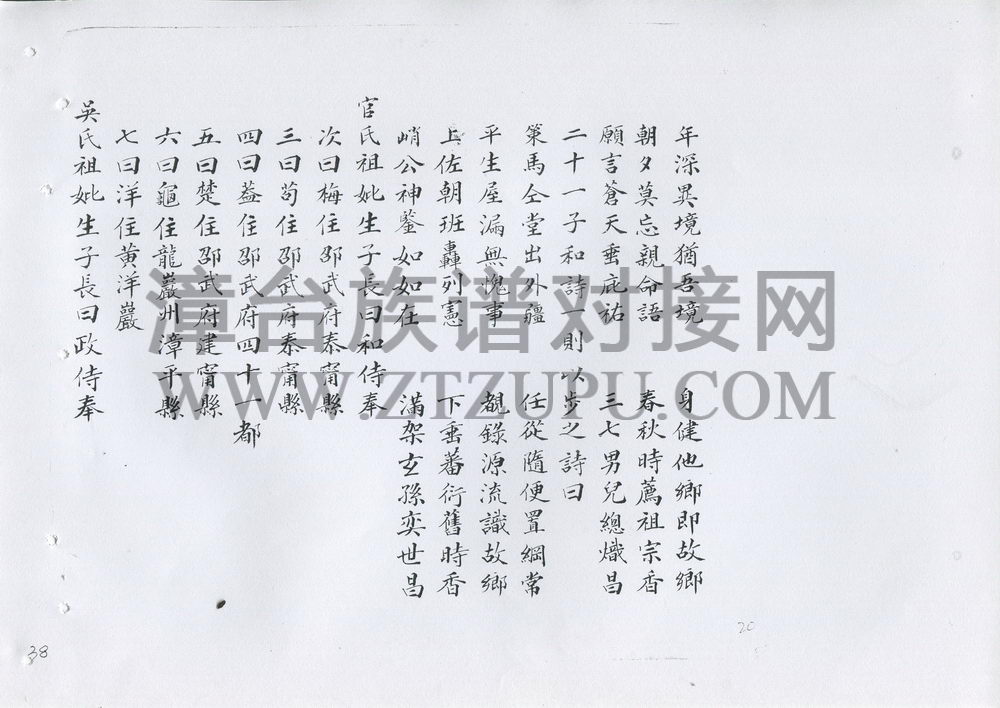 年深異境猶吾境　身健他鄉即故鄉
朝夕莫忘親命語　春秋時薦祖宗香
願言蒼天垂庇祐　三七男兒總熾昌
二十一子和詩一則以步之詩曰
策馬仝堂出外疆　任從隨便置綱常
平生屋漏無愧事　覩錄源流識故鄉
上佐朝班轟列憲　下垂蕃衍舊時香
峭公神鑒如如在　滿架玄孫奕世昌
官氏祖妣生子長曰和侍奉
次曰梅住邵武府泰甯縣
三曰苟住邵武府泰甯縣
四曰盖住邵武府四十一都
五曰楚住邵武府建甯縣
六曰龜住龍巖州漳平縣
七曰洋住黄洋巖
吳氏祖妣生子長曰政侍奉
漳台族谱对接网
WWW.ZTZUPU.COM
20
38